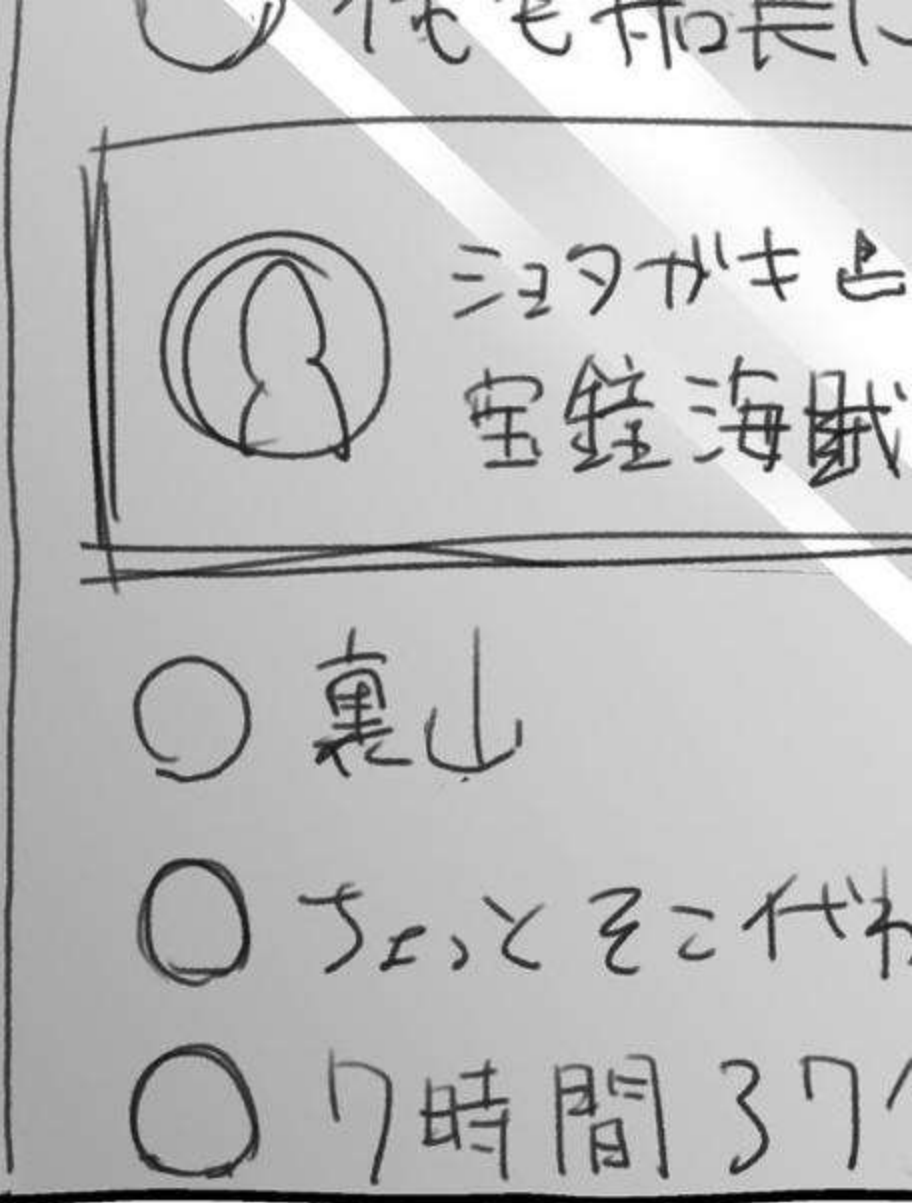 俺も船長に
ショタガキと
宝鐘海賊
裏山
ちょっとそこ代わ
7時間37